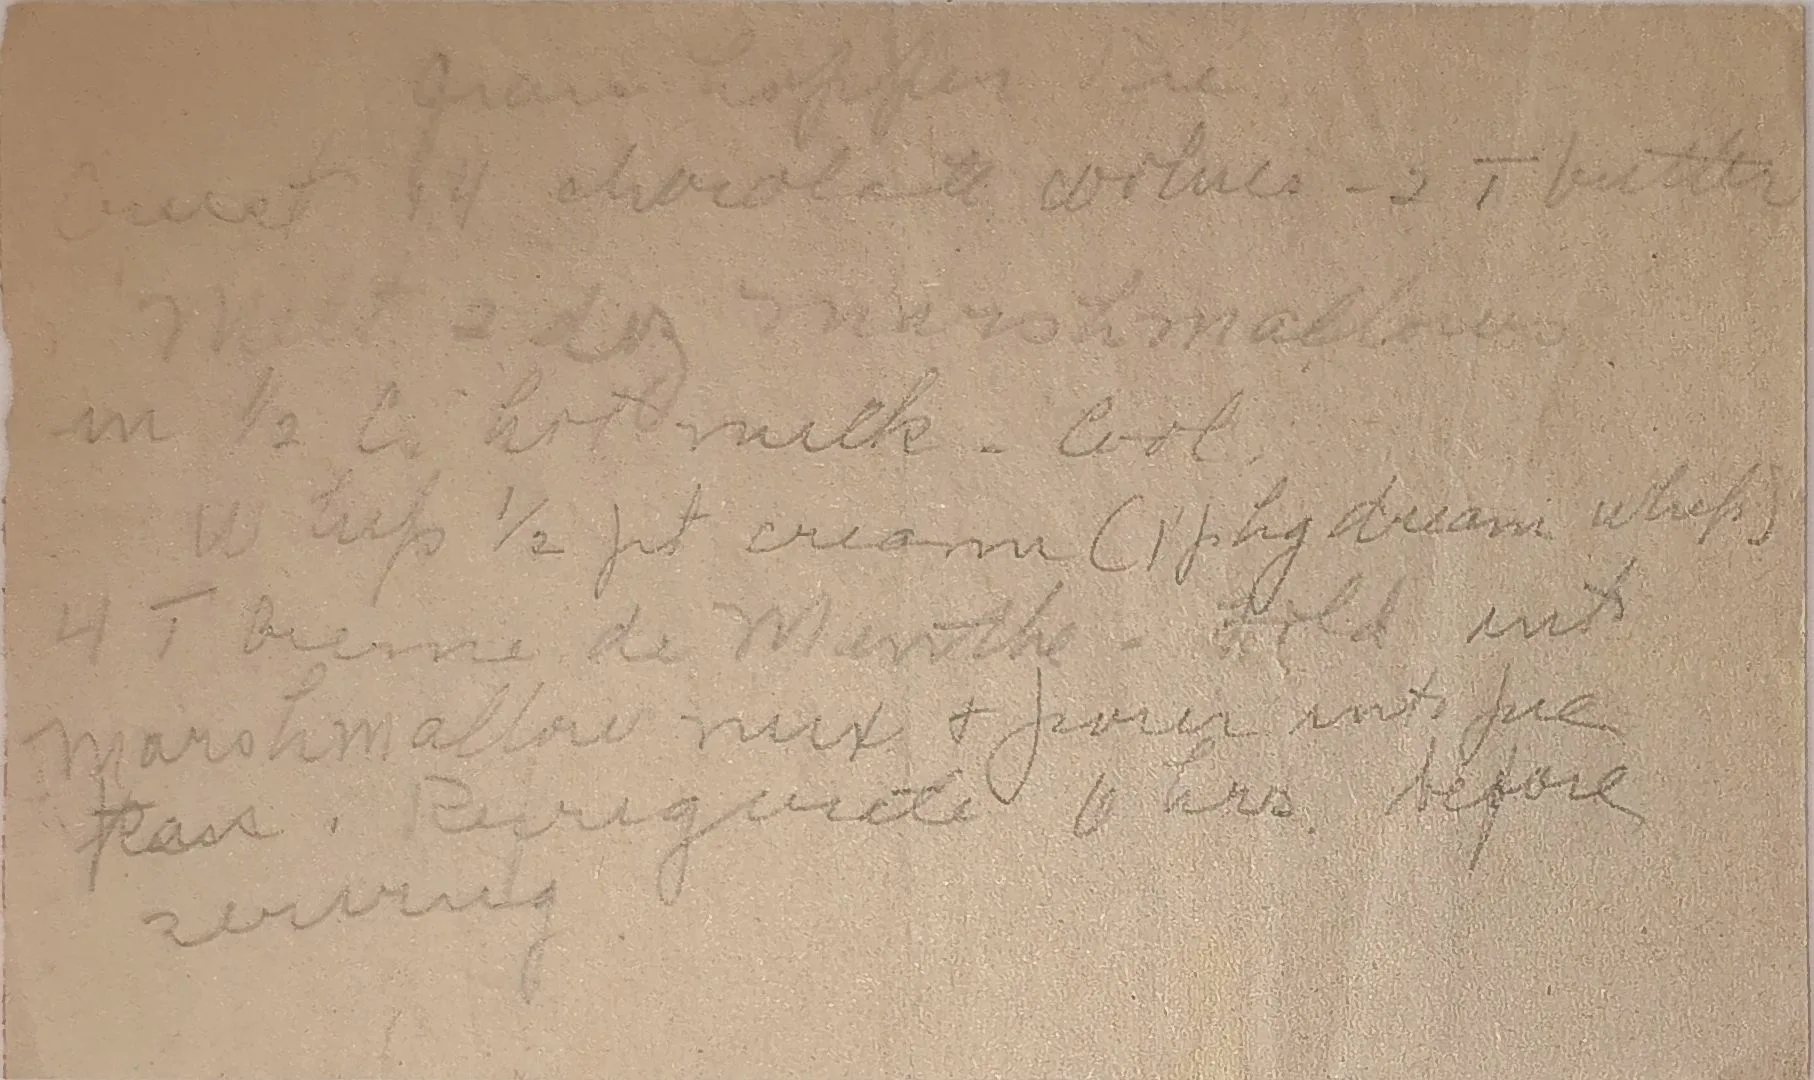 Grass hopper Pie
Crust 14 chocolate - 2 T butter
Melt 2 doz Marshmallows
in 1/2 C. hot milk - Cool.
Whip 1/2 pt cream (1 pkg dream whip)
4 T Creme de Menthe - Fold into
Marshmallow mix + pour into pie
Refrigerate hrs. before
serving